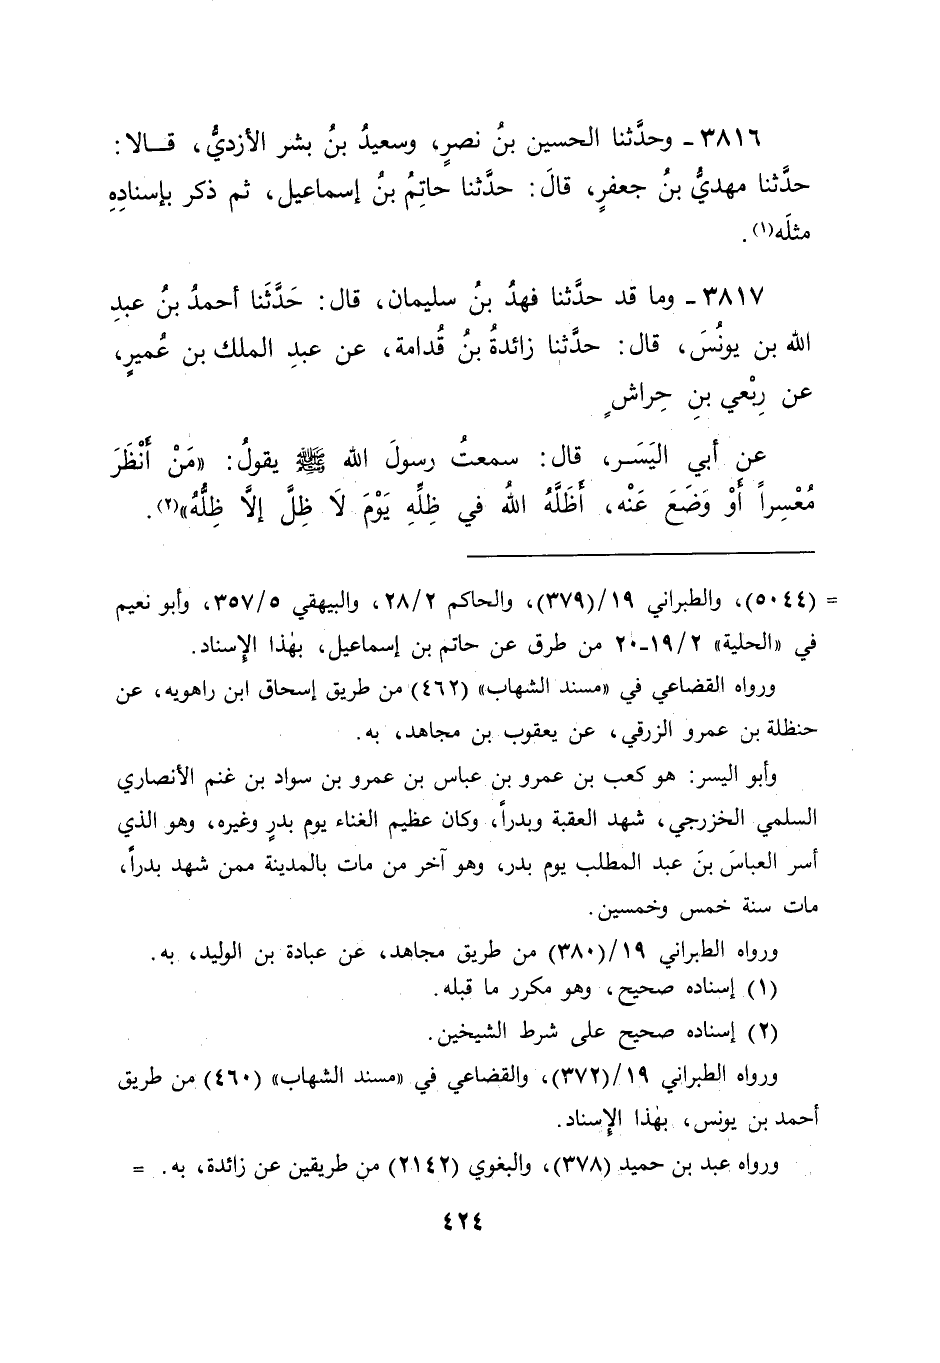 ٣٨١٦ ـ وحدَّثنا الحسين بنُ نصرٍ، وسعيدُ بنُ بشر الأزديُّ، قـالا:
حدَّثنا مهديُّ بنُ جعفرٍ، قالَ: حدَّثنا حاتِمُ بنُ إسماعيل، ثم ذكر بإسنادِهِ
مثلَه(١).
٣٨١٧ ـ وما قد حدَّثنا فهدُ بنُ سليمان، قال: حَدَّثَنا أحمدُ بنُ عبدِ
الله بن يونُسَ، قال: حدَّثنا زائدةُ بنُ قُدامة، عن عبدِ الملك بن عُميرٍ،
عن رِبْعي بنِ حِراشٍ
عن أبي اليَسَـر، قال: سمعتُ رسولَ الله ﷺ يقولُ: «مَنْ أَنْظَرَ
مُعْسِراً أَوْ وَضَعَ عَنْه، أَظَلَّهُ اللهُ في ظِلِّهِ يَوْمَ لَا ظِلَّ إلَّا ظِلُّهُ»(٢).
= (٥٠٤٤)، والطبراني ١٩/(٣٧٩)، والحاكم ٢٨/٢، والبيهقي ٣٥٧/٥، وأبو نعيم
في «الحلية» ١٩/٢ـ٢٠ من طرق عن حاتم بن إسماعيل، بهٰذا الإسناد.
ورواه القضاعي في «مسند الشهاب» (٤٦٢) من طريق إسحاق ابن راهويه، عن
حنظلة بن عمرو الزرقي، عن يعقوب بن مجاهد، به.
وأبو اليسر: هو كعب بن عمرو بن عباس بن عمرو بن سواد بن غنم الأنصاري
السلمي الخزرجي، شهد العقبة وبدراً، وكان عظيم الغناء يوم بدرٍ وغيره، وهو الذي
أسر العباسَ بنَ عبد المطلب يوم بدر، وهو آخر من مات بالمدينة ممن شهد بدراً،
مات سنة خمس وخمسين.
ورواه الطبراني ١٩/(٣٨٠) من طريق مجاهد، عن عبادة بن الوليد، به.
(١) إسناده صحيح، وهو مكرر ما قبله.
(٢) إسناده صحيح على شرط الشيخين.
ورواه الطبراني ١٩/(٣٧٢)، والقضاعي في «مسند الشهاب» (٤٦٠) من طريق
أحمد بن يونس، بهٰذا الإسناد.
ورواه عبد بن حميد (٣٧٨)، والبغوي (٢١٤٢) من طريقين عن زائدة، به. =
٤٢٤